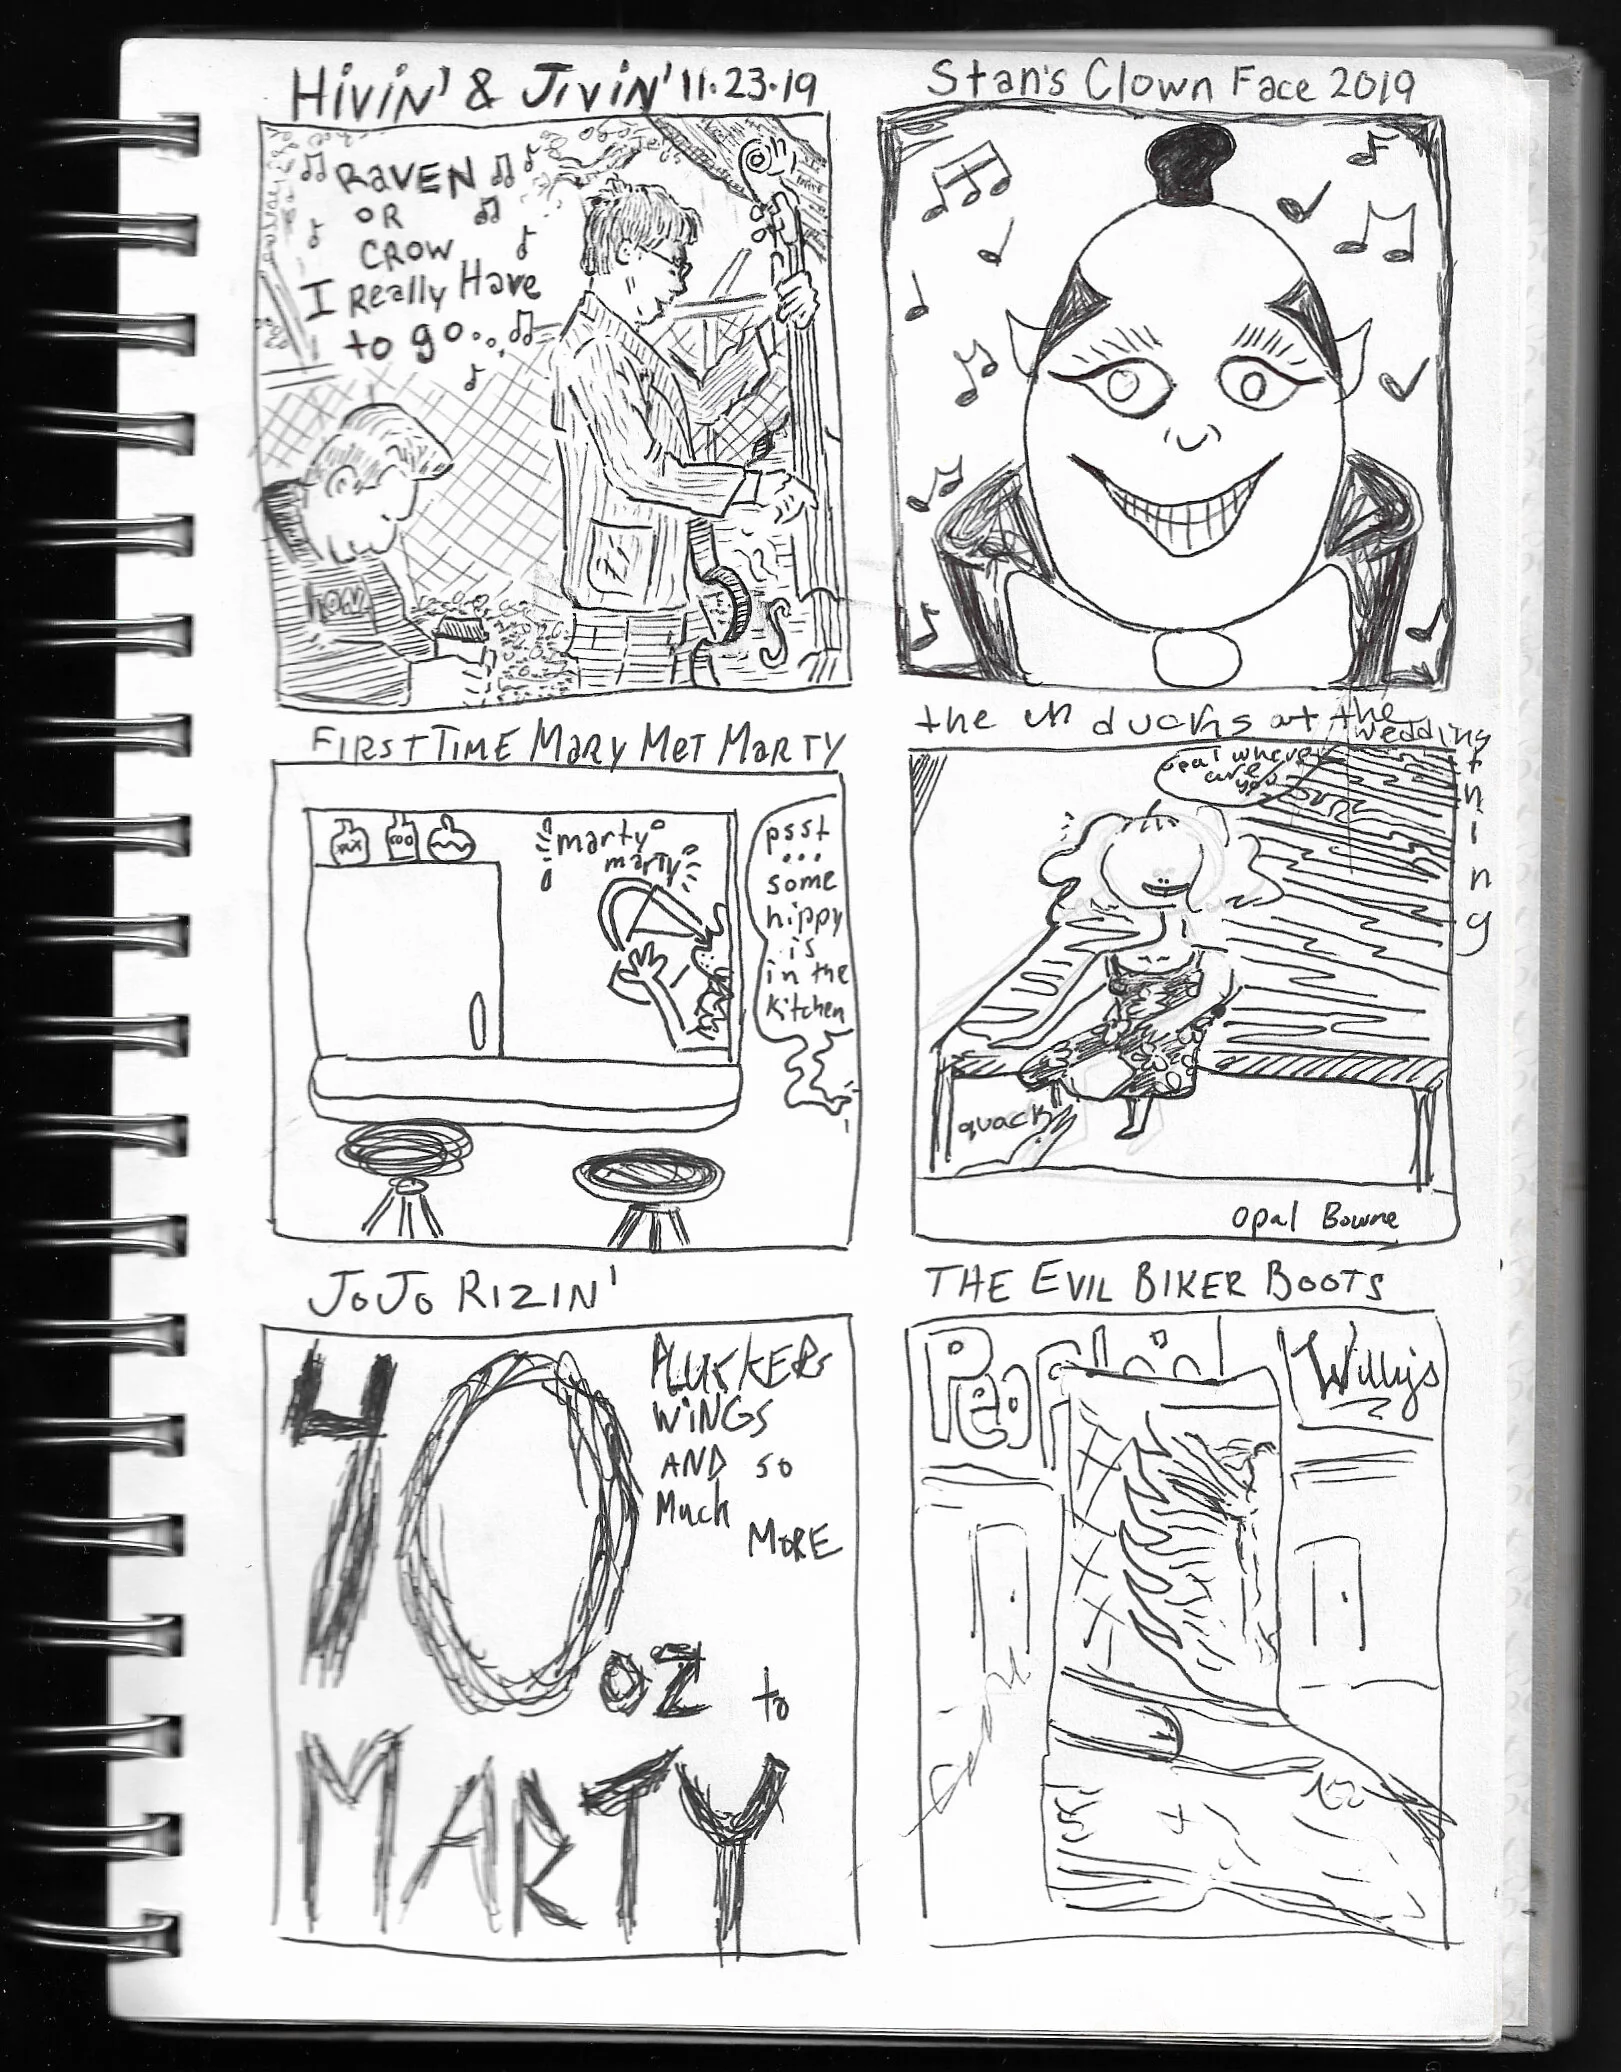 HiViN' & JiViN' 11.23.19
RAVEN
OR
CROW
I Really Have
to go...
Stan's Clown Face 2019
FIRST TIME MARY MET MARTY
marty
marty
psst
...
some
hippy
is
in the
kitchen
ducks at the
wedding
thing
opal where
are
you
quack
Opal Bowne
JOJO RIZIN'
40.oz to
MARTY
PLUCKERS
WiNGS
AND so
Much
MORE
THE EVIL BIKER BOOTS
Willys